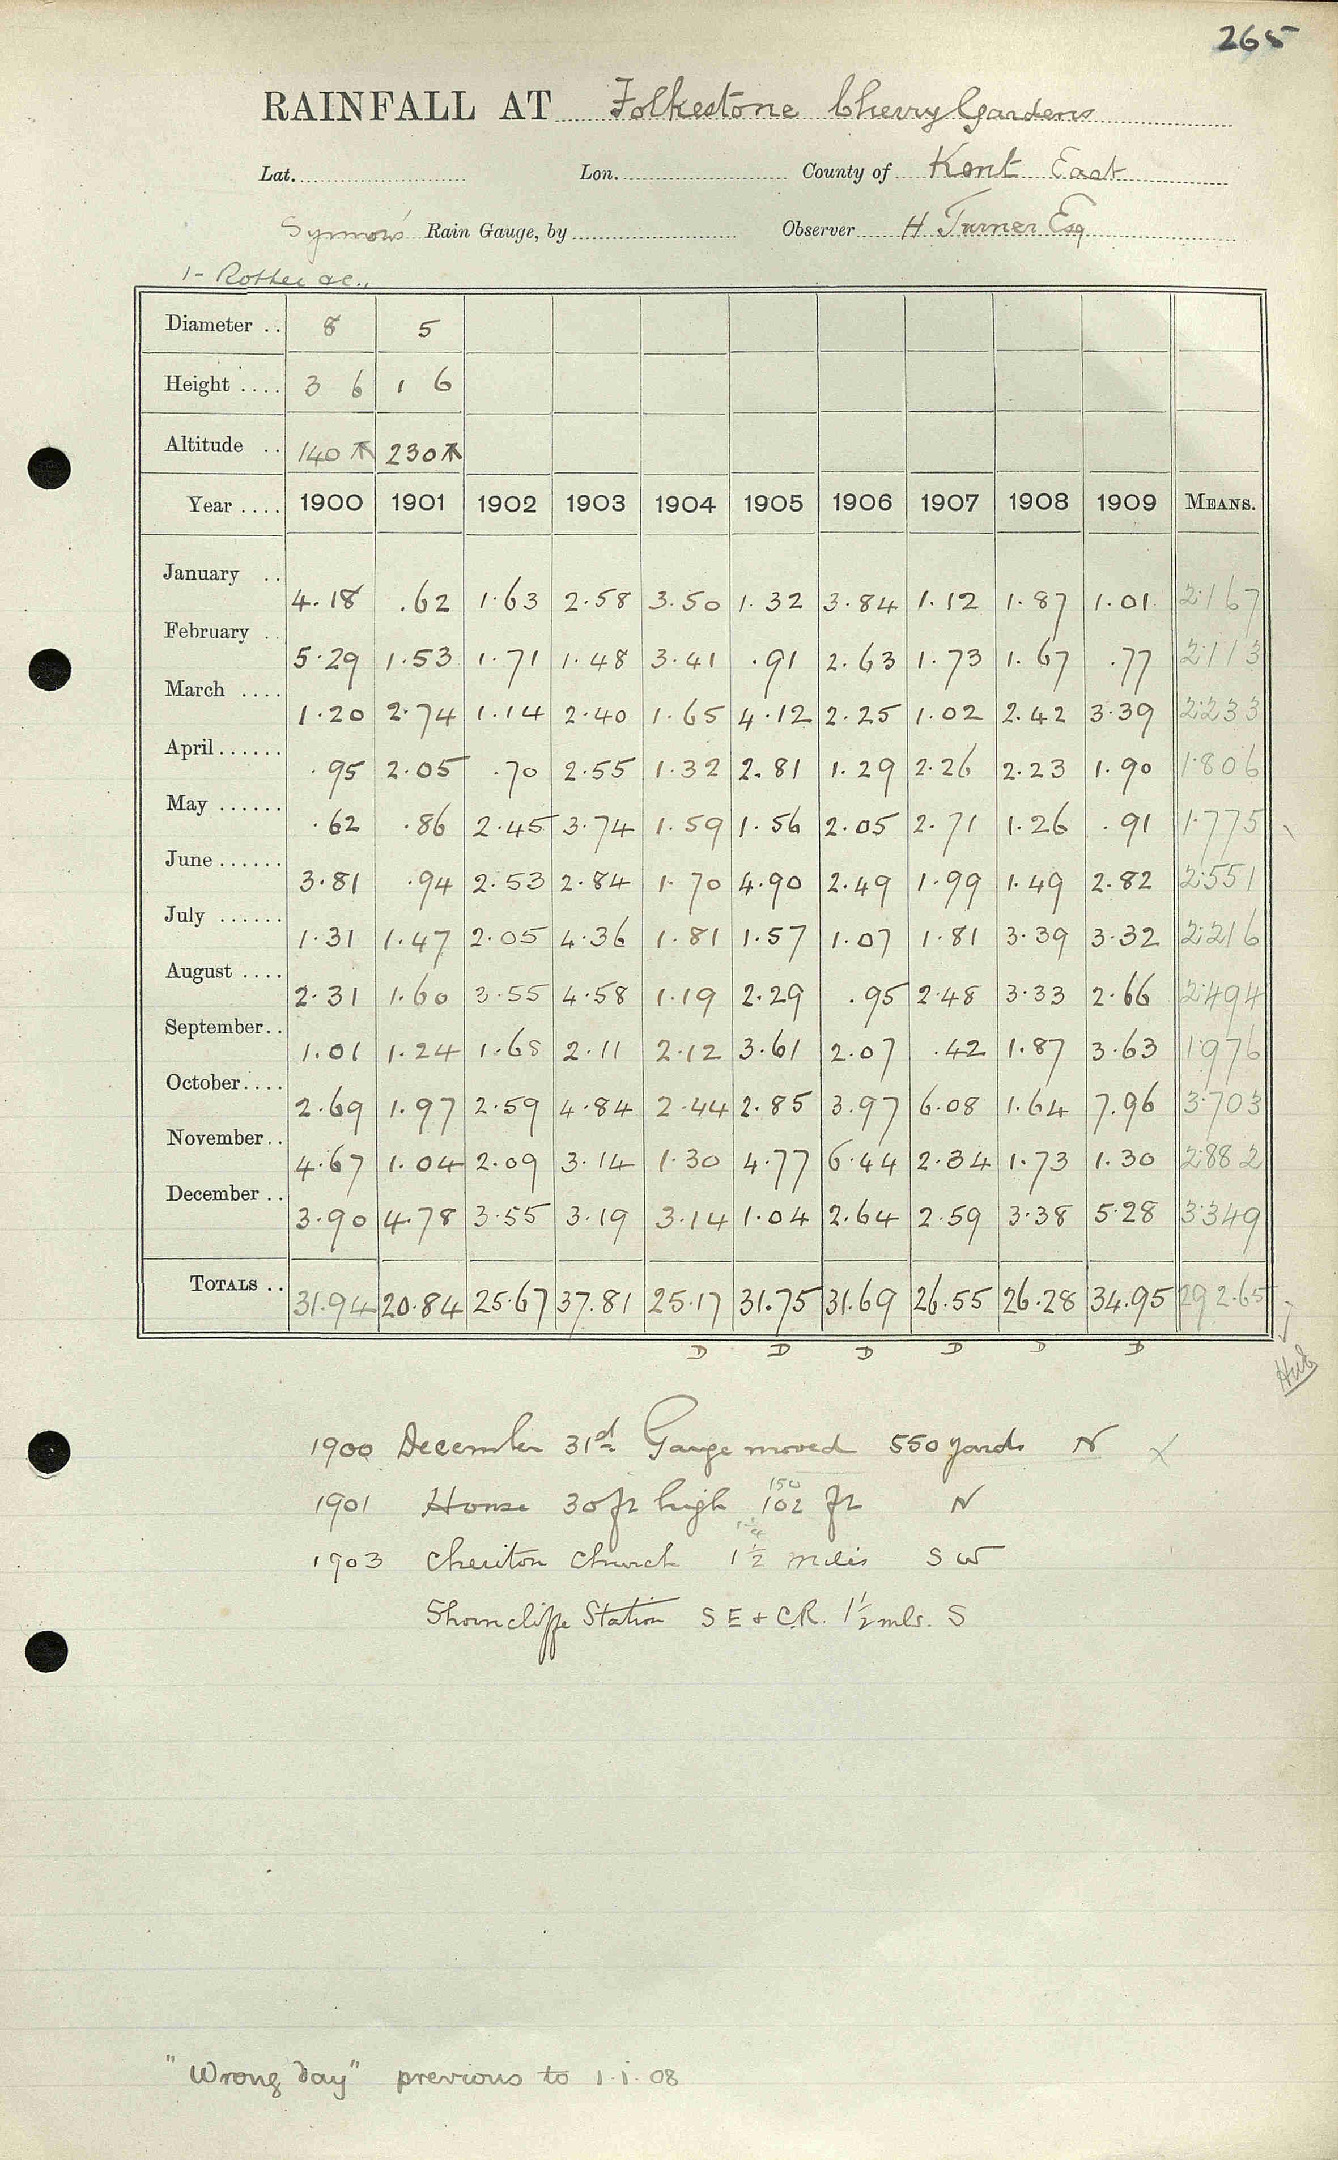 265
RAINFALL AT Folkestone Cherry Gardens
Lat. Lon. County of Kent East
Symons Rain Gauge, by Observer H Turner Esq
1- Rother &c.,
Diameter .. 8 5
Height .... 3 6 1 6
Altitude .. 140 230
Year .... 1900 1901 1902 1903 1904 1905 1906 1907 1908 1909 MEANS.
January .. 4.18 .62 1.63 2.58 3.50 1.32 3.84 1.12 1.87 1.01 2.167
February .. 5.29 1.53 1.71 1.48 3.41 .91 2.63 1.73 1.67 .77 2.113
March .... 1.20 2.74 1.14 2.40 1.65 4.12 2.25 1.02 2.42 3.39 2.233
April ...... .95 2.05 .70 2.55 1.32 2.81 1.29 2.26 2.23 1.90 1.806
May ...... .62 .86 2.45 3.74 1.59 1.56 2.05 2.71 1.26 .91 1.775
June ...... 3.81 .94 2.53 2.84 1.70 4.90 2.49 1.99 1.49 2.82 2.551
July ...... 1.31 1.47 2.05 4.36 1.81 1.57 1.07 1.81 3.39 3.32 2.216
August .... 2.31 1.60 3.55 4.58 1.19 2.29 .95 2.48 3.33 2.66 2.494
September .. 1.01 1.24 1.68 2.11 2.12 3.61 2.07 .42 1.87 3.63 1.976
October .... 2.69 1.97 2.59 4.84 2.44 2.85 3.97 6.08 1.64 7.96 3.703
November .. 4.67 1.04 2.09 3.14 1.30 4.77 6.44 2.34 1.73 1.30 2.882
December .. 3.90 4.78 3.55 3.19 3.14 1.04 2.64 2.59 3.38 5.28 3.349
TOTALS .. 31.94 20.84 25.67 37.81 25.17 31.75 31.69 26.55 26.28 34.95 292.65
D D D D D D
1900 December 31st Gauge moved 550 yards N X
150
1901 House 30 ft high 102 ft N
1 1/4
1903 Cheriton Church 1½ miles SW
Shorncliffe Station S E & C.R. 1½ mls. S
"Wrong day" previous to 1.1.08